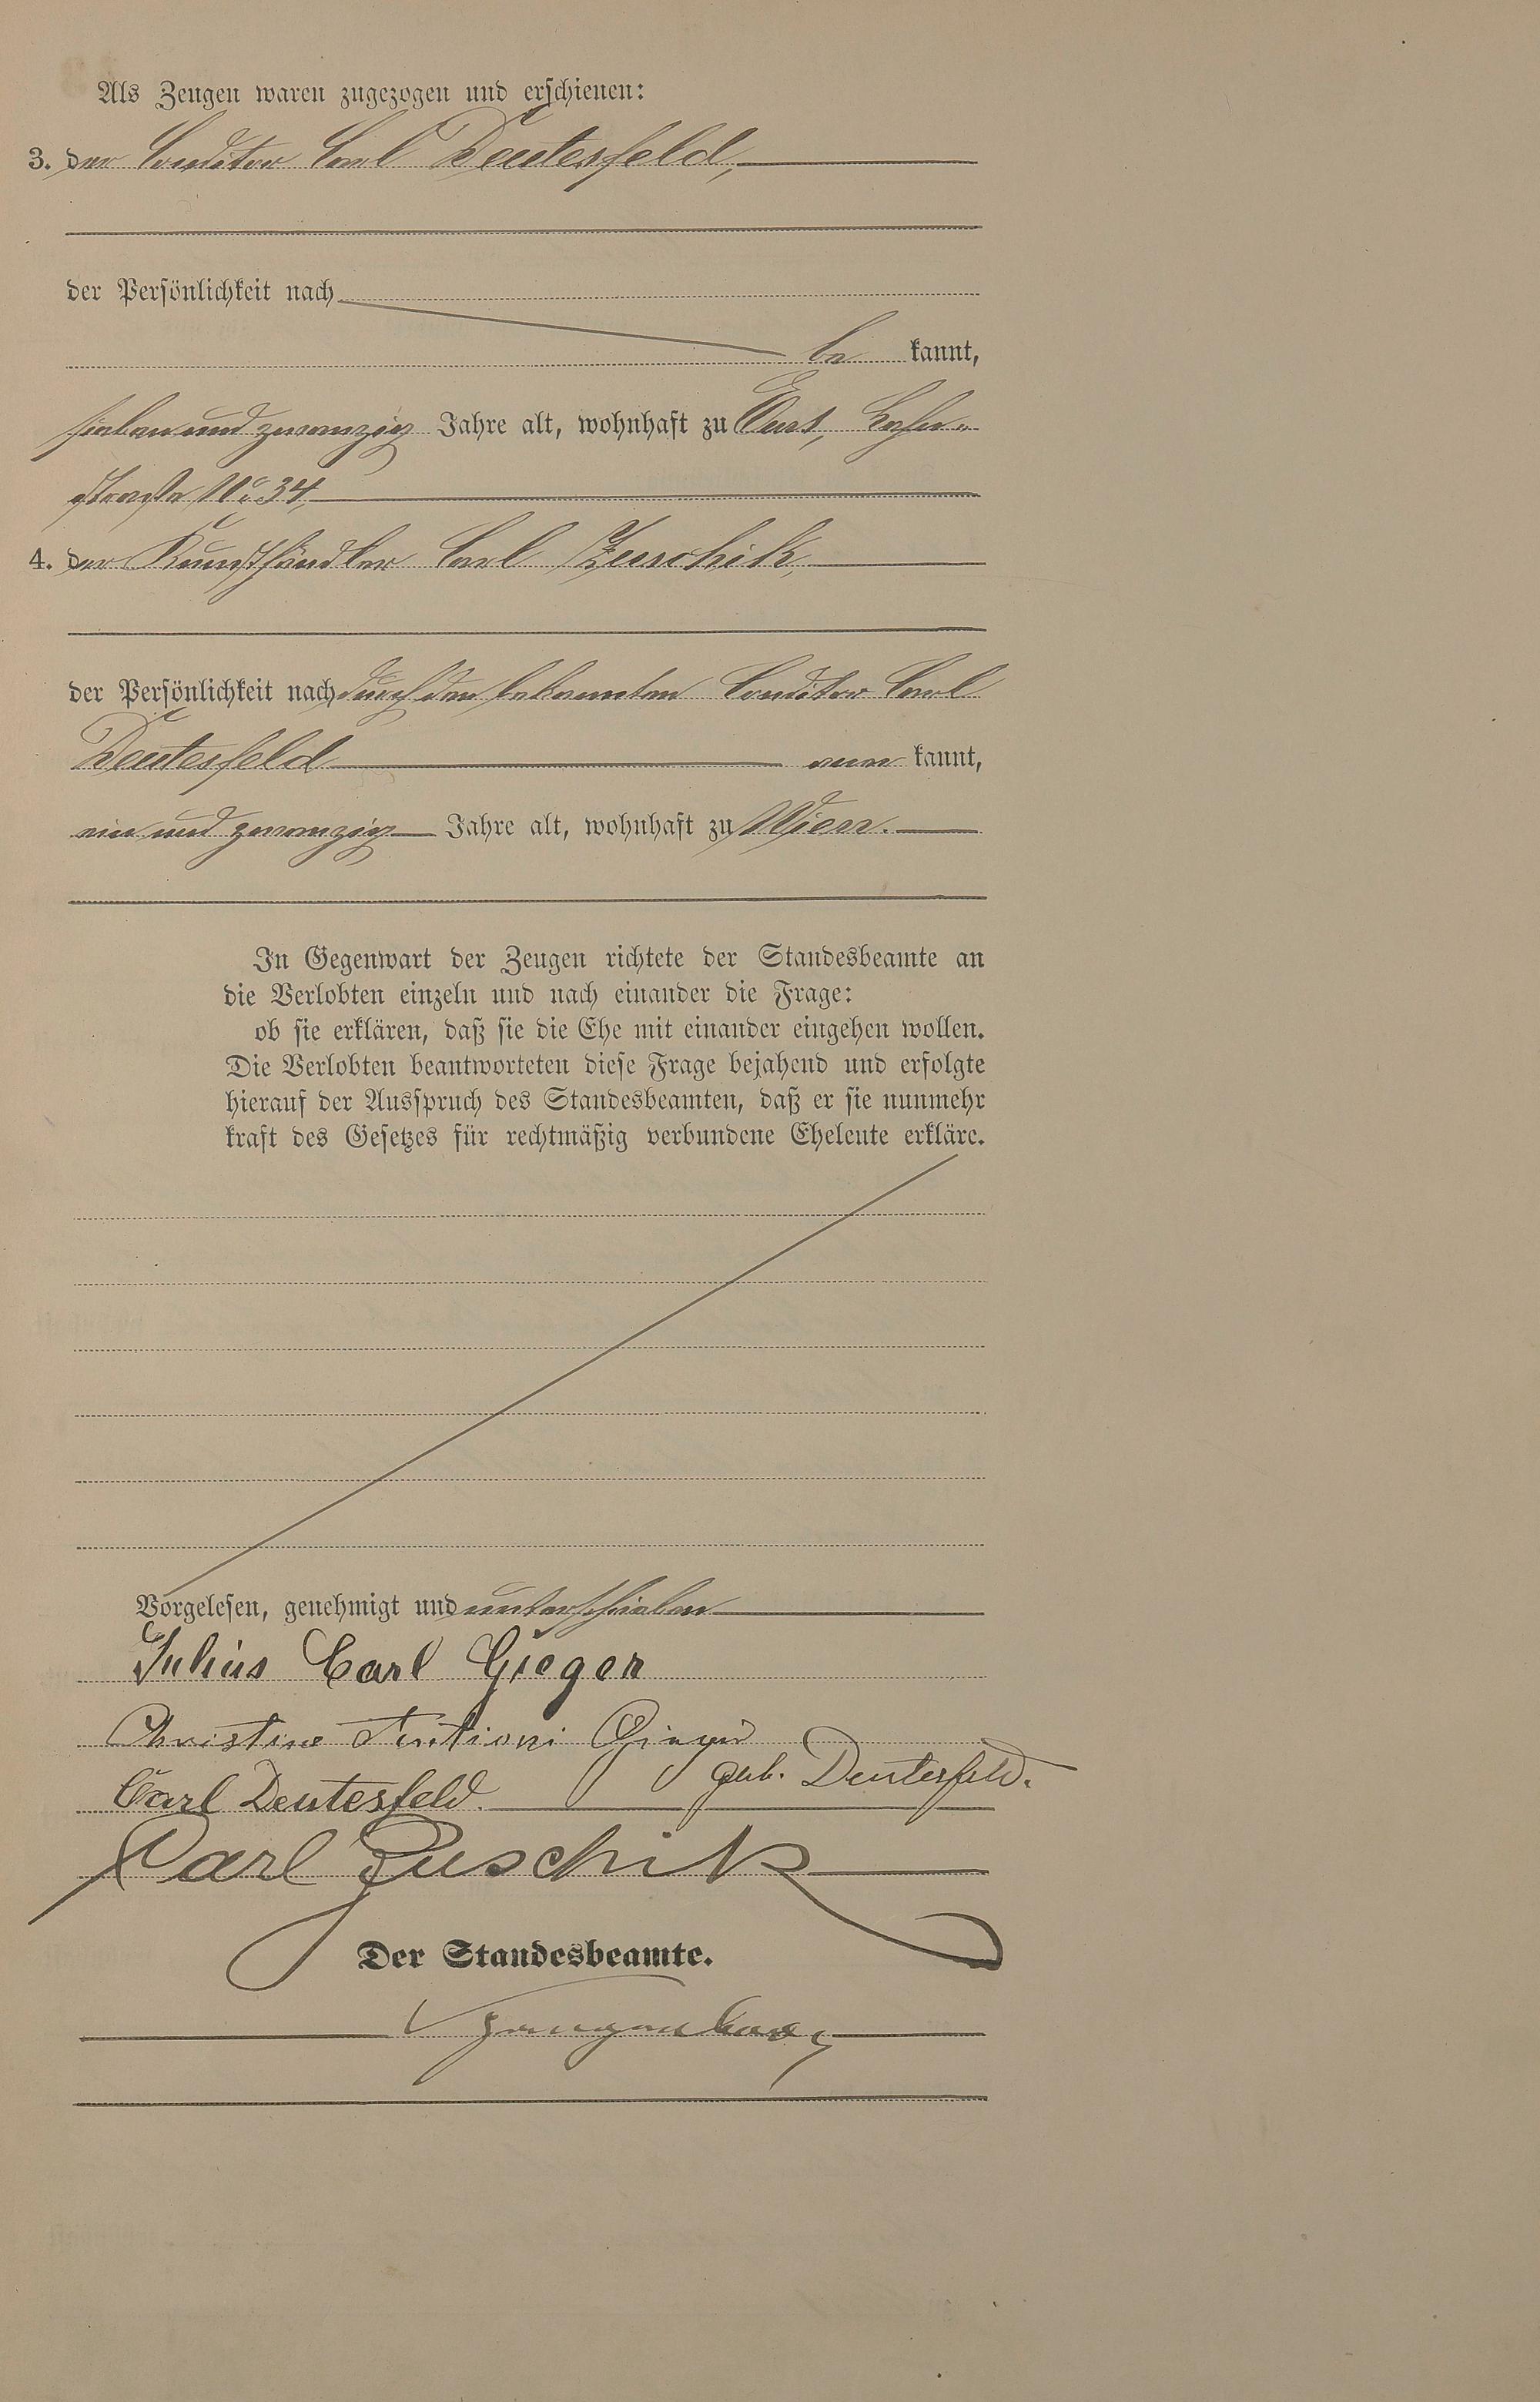 Als Zeugen waren zugezogen und erschienen:
3. der Conditor Carl Deutesfeld,
der Persönlichkeit nach
be kannt,
sieben und zwanzig Jahre alt, wohnhaft zu
straße No 34,
4. der Kunsthändler Carl Puschik,
der Persönlichkeit nach durch den bekannten Conditor Carl
Deutesfeld aner kannt,
ein und zwanzig Jahre alt, wohnhaft zu Wien.
In Gegenwart der Zeugen richtete der Standesbeamte an
die Verlobten einzeln und nach einander die Frage:
ob sie erklären, daß sie die Ehe mit einander eingehen wollen.
Die Verlobten beantworteten diese Frage bejahend und erfolgte
hierauf der Ausspruch des Standesbeamten, daß er sie nunmehr
kraft des Gesetzes für rechtmäßig verbundene Eheleute erkläre.
Vorgelesen, genehmigt und unterschrieben
Julius Carl Gieger
Christine Gieger
geb. Deutesfeld.
Carl Deutesfeld.
Carl Puschik
Der Standesbeamte.